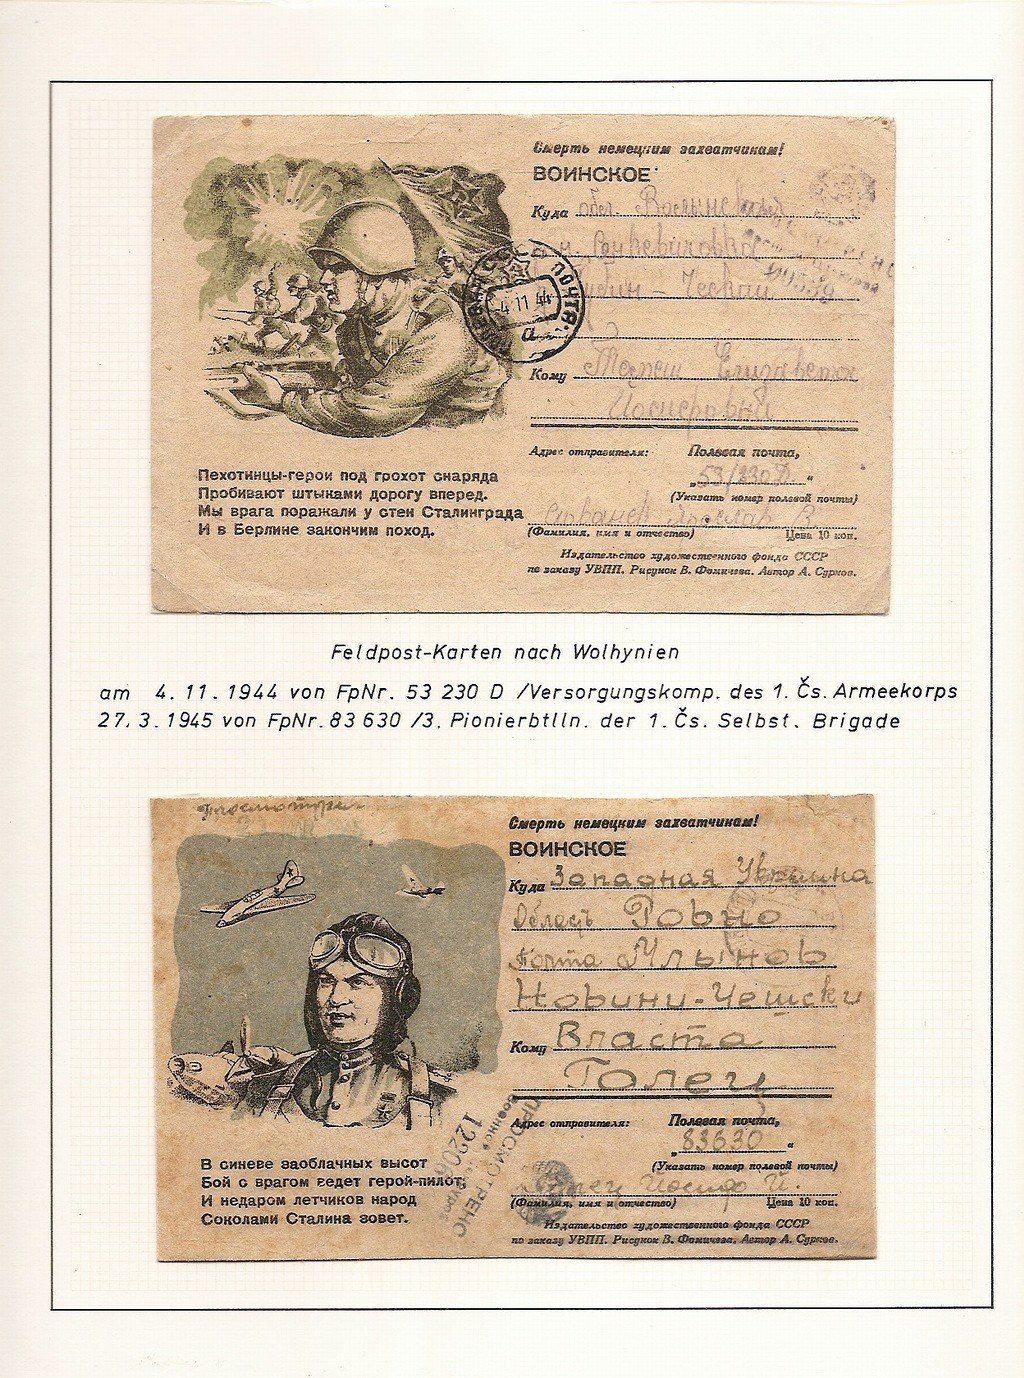 Смерть немецким захватчикам!
ВОИНСКОЕ
Куда обл.
Чески
ПОЧТА
4 11 44
а
Кому Елизавета
Адрес отправителя: Полевая почта,
„53/230 Д“
(Указать номер полевой почты)
Ярослав В.
(Фамилия, имя и отчество) Цена 10 коп.
Издательство художественного фонда СССР
по заказу УВПП. Рисунок В. Фомичева. Автор А. Сурков.
Пехотинцы-герои под грохот снаряда
Пробивают штыками дорогу вперед.
Мы врага поражали у стен Сталинграда
И в Берлине закончим поход.
Feldpost-Karten nach Wolhynien
am 4.11.1944 von FpNr. 53 230 D /Versorgungskomp. des 1. Čs. Armeekorps
27.3.1945 von FpNr. 83 630 /3. Pionierbtlln. der 1. Čs. Selbst. Brigade
Смерть немецким захватчикам!
ВОИНСКОЕ
Куда Западная Украина
Ровно
Почта Млынов
Новини-Чешски
Кому Власта
Голец
Адрес отправителя: Полевая почта,
„83630“
(Указать номер полевой почты)
Иосиф И.
(Фамилия, имя и отчество) Цена 10 коп.
Издательство художественного фонда СССР
по заказу УВПП. Рисунок В. Фомичева. Автор А. Сурков.
ПРОСМОТРЕНО
В синеве заоблачных высот
Бой с врагом ведет герой-пилот,
И недаром летчиков народ
Соколами Сталина зовет.